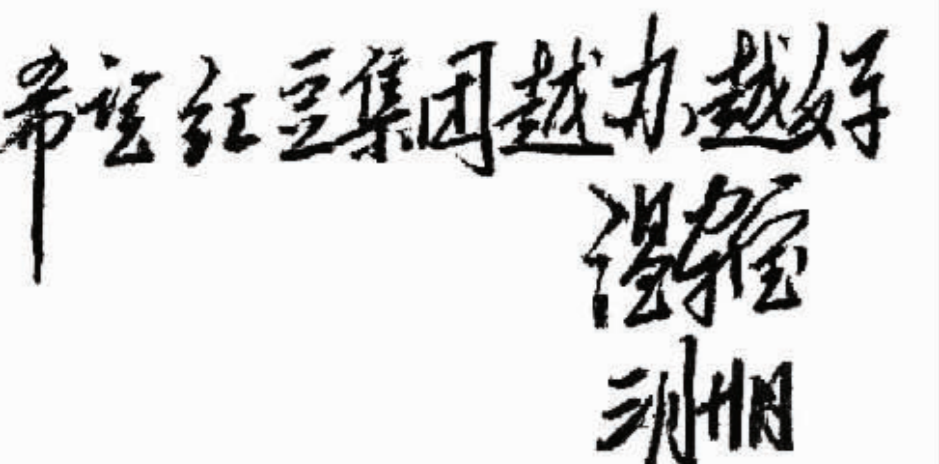 希望红豆集团越办越好
温家宝
三月